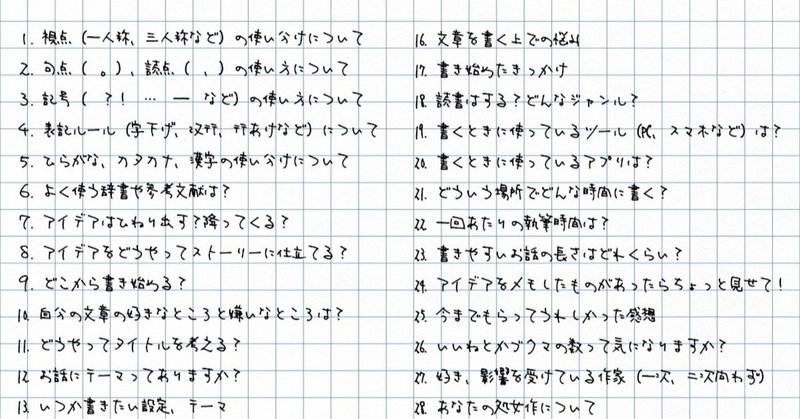 1. 視点（一人称、三人称など）の使い分けについて
2. 句点（。）、読点（、）の使い方について
3. 記号（？！…―など）の使い方について
4. 表記ルール（字下げ、改行、行あけなど）について
5. ひらがな、カタカナ、漢字の使い分けについて
6. よく使う辞書や参考文献は？
7. アイデアはひねり出す？降ってくる？
8. アイデアをどうやってストーリーに仕立てる？
9. どこから書き始める？
10. 自分の文章の好きなところと嫌いなところは？
11. どうやってタイトルを考える？
12. お話にテーマってありますか？
13. いつか書きたい設定、テーマ
16. 文章を書く上での悩み
17. 書き始めたきっかけ
18. 読書はする？どんなジャンル？
19. 書くときに使っているツール（PC、スマホなど）は？
20. 書くときに使っているアプリは？
21. どういう場所でどんな時間に書く？
22. 一回あたりの執筆時間は？
23. 書きやすいお話の長さはどれくらい？
24. アイデアをメモしたものがあったらちょっと見せて！
25. 今までもらってうれしかった感想
26. いいねとかブクマの数って気になりますか？
27. 好き、影響を受けている作家（一次、二次問わず）
28. あなたの処女作について